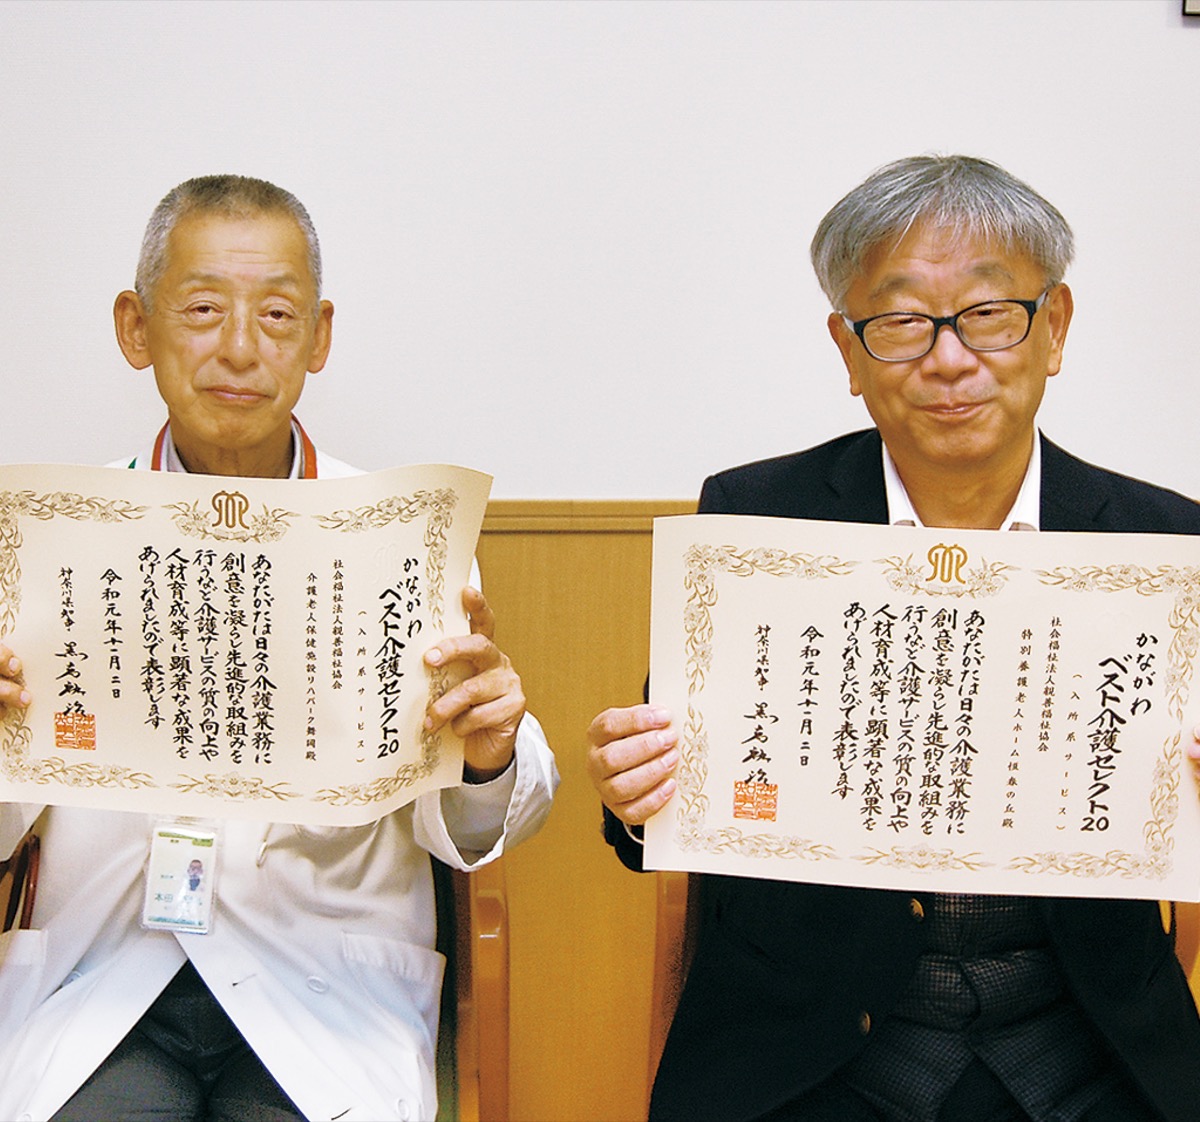 かながわ
ベスト介護セレクト20
(入所系サービス)
社会福祉法人親善福祉協会
介護老人保健施設リハパーク舞岡殿
あなたがたは日々の介護業務に
創意を凝らし先進的な取組みを
行うなど介護サービスの質の向上や
人材育成等に顕著な成果を
あげられましたので表彰します
令和元年十一月二日
神奈川県知事 黒岩祐治
本田
かながわ
ベスト介護セレクト20
(入所系サービス)
社会福祉法人親善福祉協会
特別養護老人ホーム恒春の丘殿
あなたがたは日々の介護業務に
創意を凝らし先進的な取組みを
行うなど介護サービスの質の向上や
人材育成等に顕著な成果を
あげられましたので表彰します
令和元年十一月二日
神奈川県知事 黒岩祐治